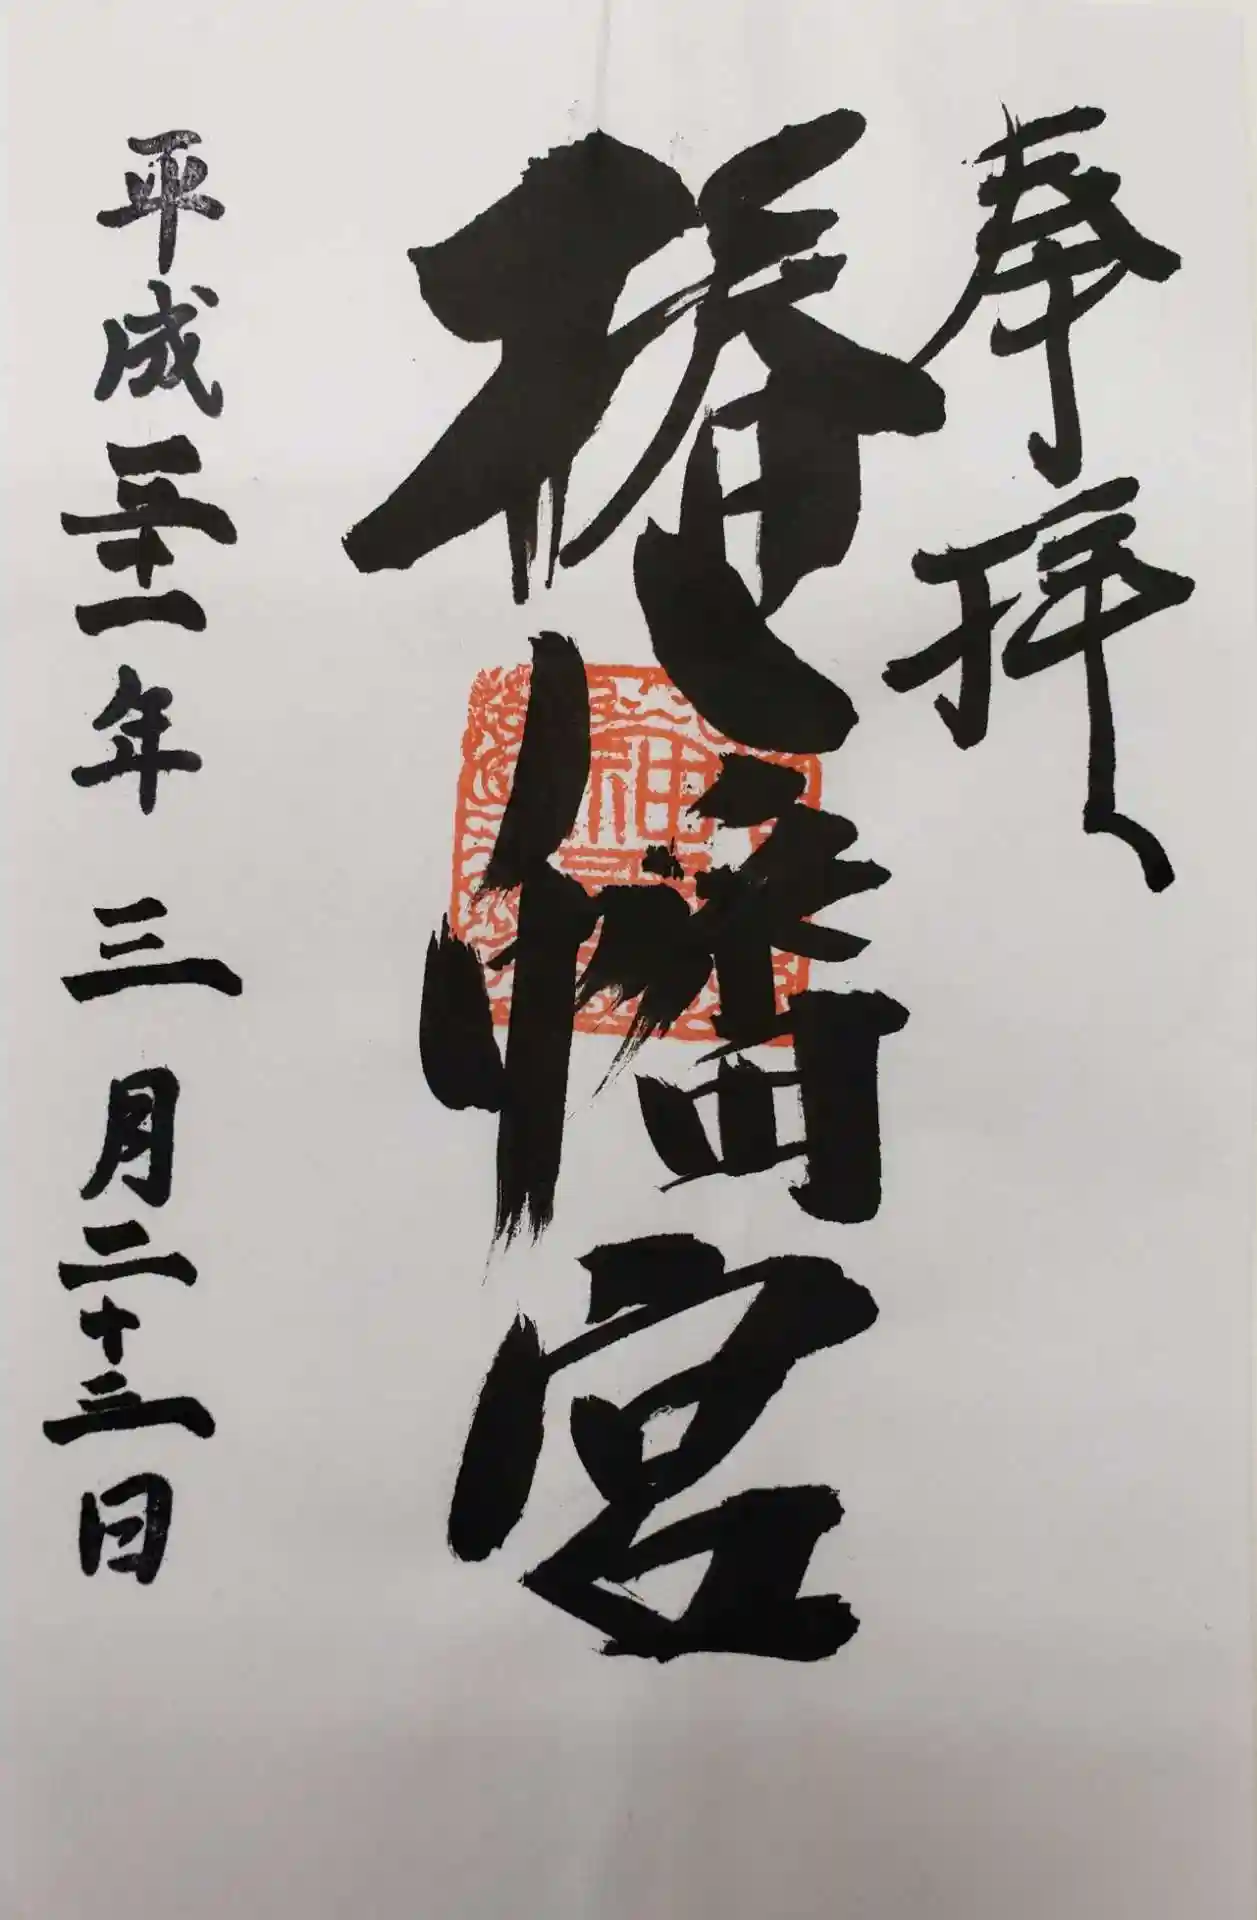 奉拝
椿八幡宮
平成三十一年三月二十三日